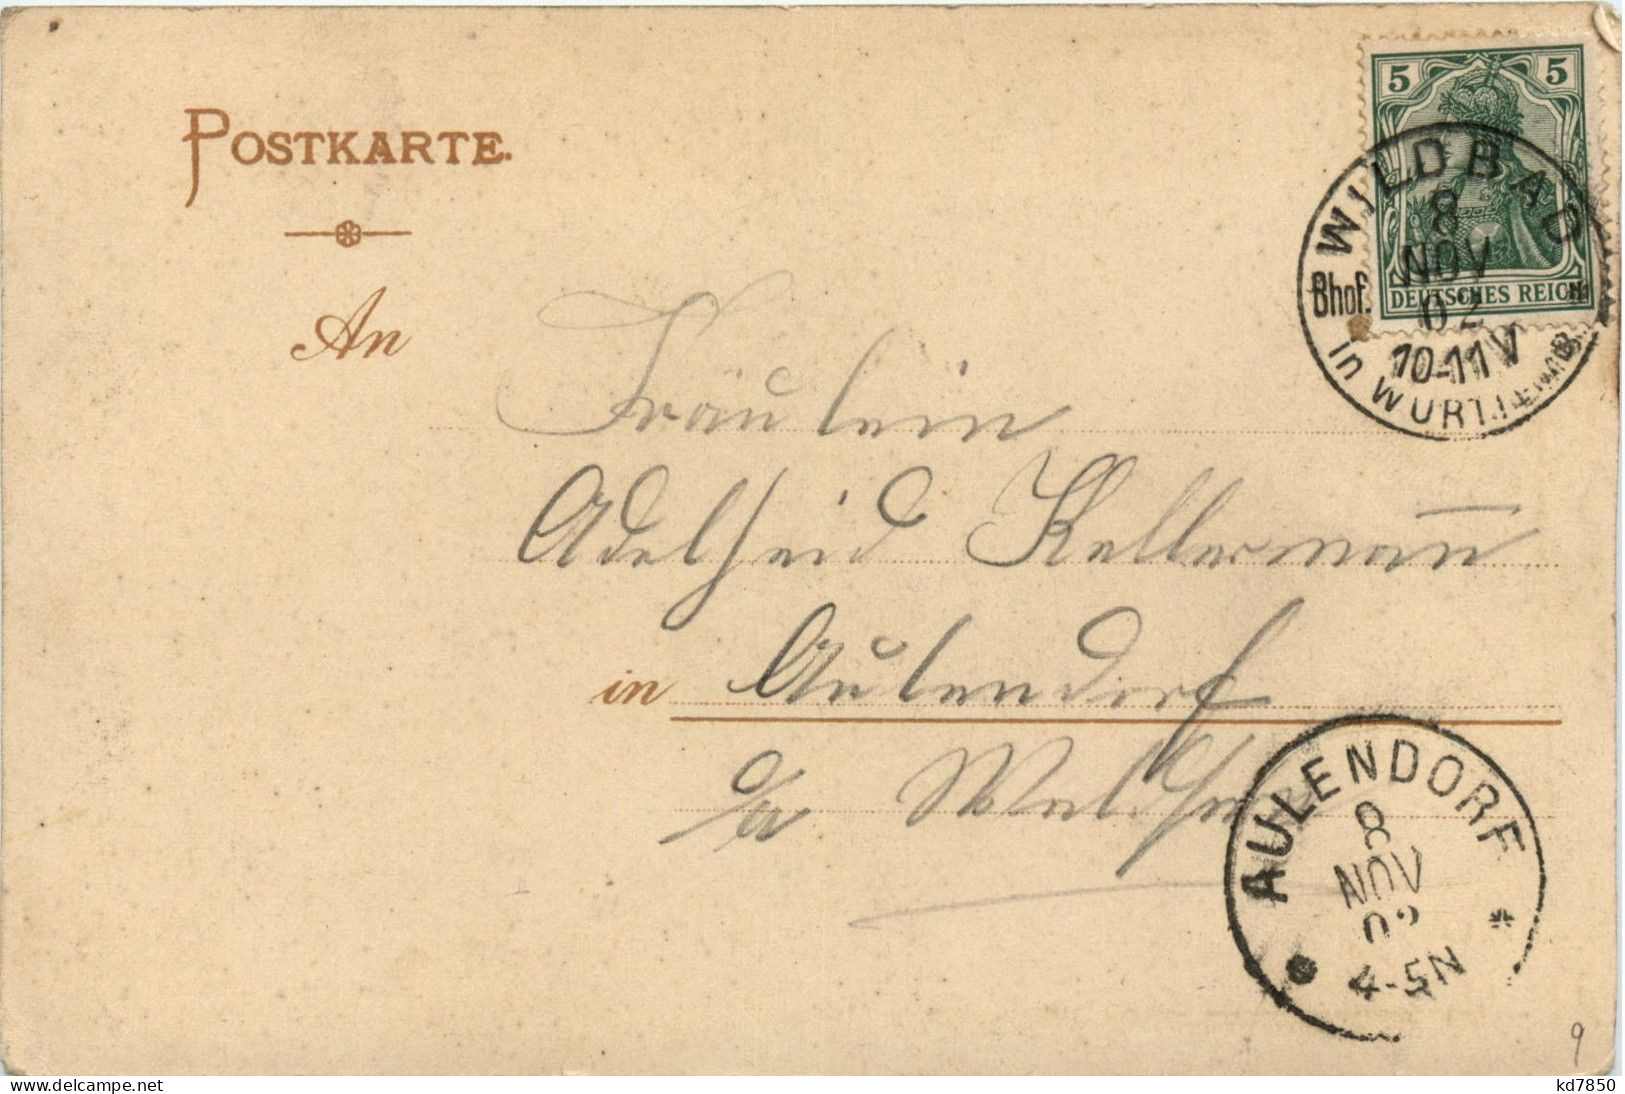 POSTKARTE.
5 5
DEUTSCHES REICH
WILDBAD
8
NOV
02
Bhof.
10-11V
in WÜRTTEMB.
An
Fräulein
Adelheid Kellermann
in Aulendorf
o/a Waldsee
AULENDORF
8
NOV
02
4-5N
9
kd7850